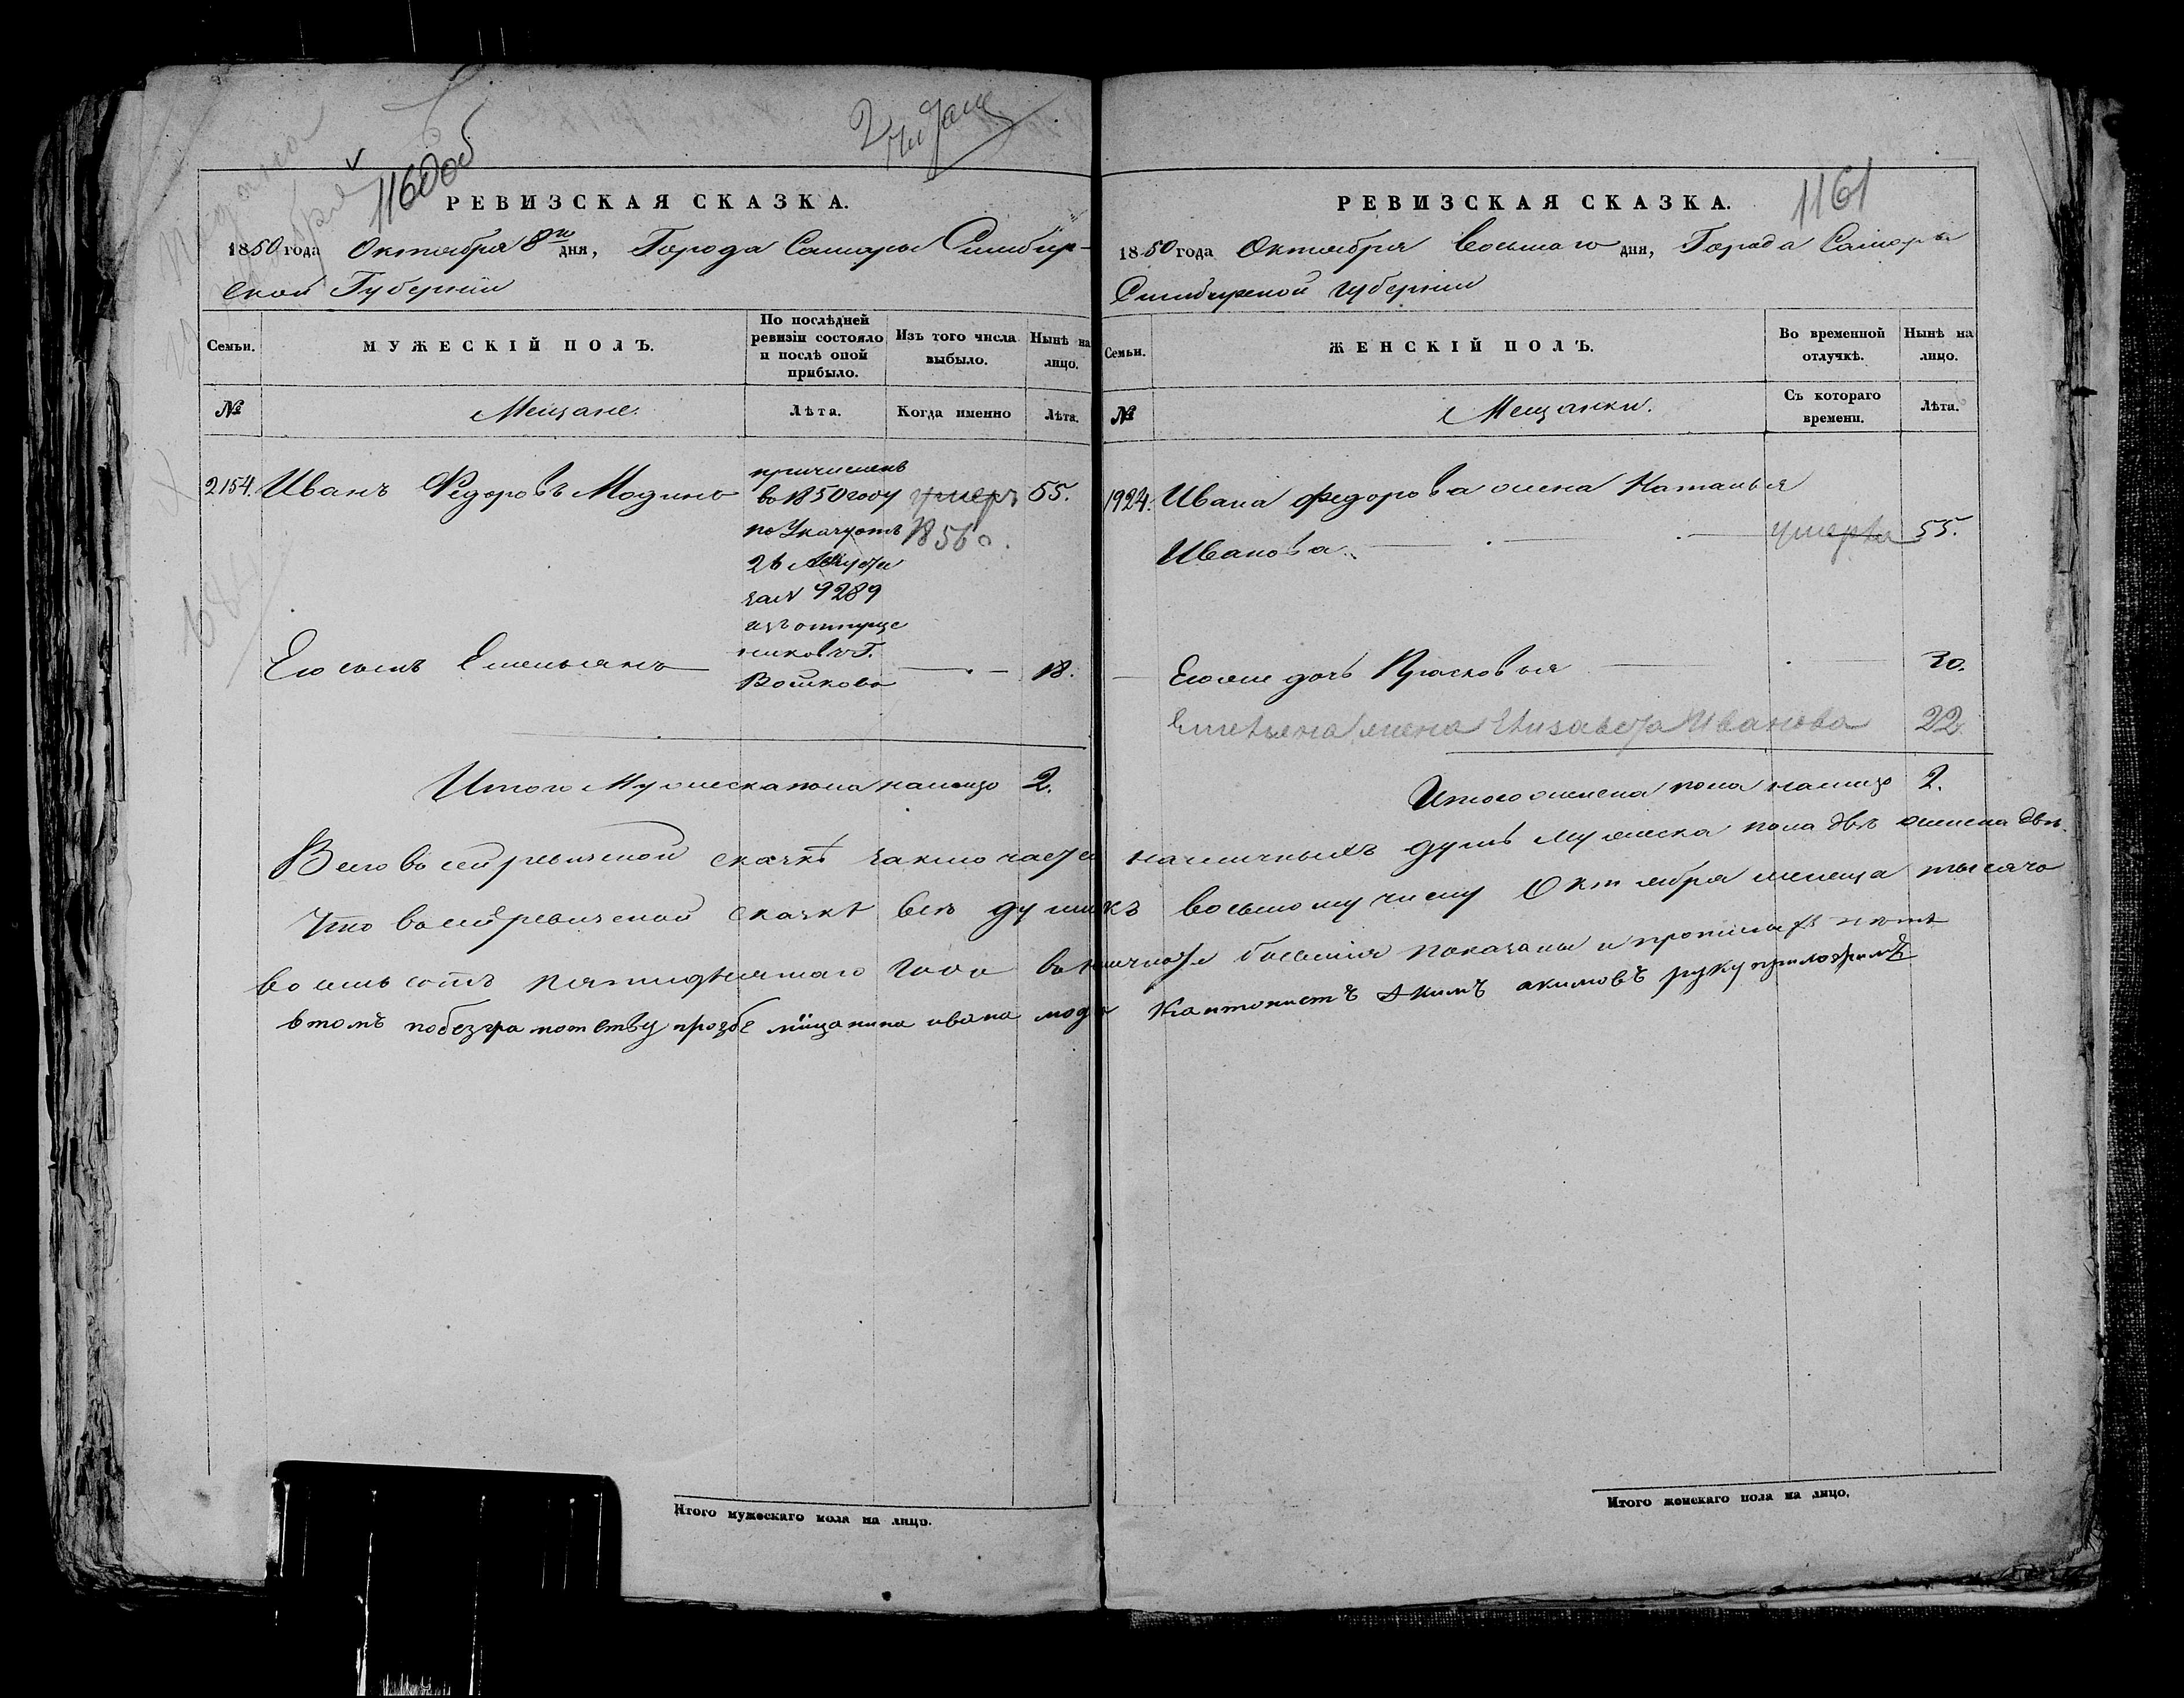 1160об
РЕВИЗСКАЯ СКАЗКА.
1850 года Октября 8го дня, Города Самары Симбир-
ской Губерніи
Семьи.
МУЖЕСКІЙ ПОЛЪ.
По послѣдней
ревизіи состояло
и послѣ оной
прибыло.
Изъ того числа
выбыло.
Нынѣ на
лицо.
№
Мещане.
Лѣта.
Когда именно
Лѣта.
2154. Иванъ Федоровъ Модинъ
причисленъ
во 1850 году
по Указу отъ
26 Августа
за N 9289
изъ отпуще
никовъ Г.
умеръ
1856
55.
Его сынъ Емельянъ
18.
Итого Мужеска пола налицо 2.
1161
РЕВИЗСКАЯ СКАЗКА.
1850 года Октября Восьмаго дня, Города Самары
Симбирской губерніи
Семьи.
ЖЕНСКІЙ ПОЛЪ.
Во временной
отлучкѣ.
Нынѣ на
лицо.
№
Мещанки.
Съ котораго
времени.
Лѣта.
1924. Ивана Федорова жена Наталья
Иванова умерла 55.
Его же дочь Прасковья 30.
Емельяна жена Елизавета Иванова 22
Итого женска пола налицо 2.
Всего въ сей ревизской сказкѣ заключается наличныхъ душъ мужеска пола двѣ женска двѣ.
Что въ сей ревизской сказкѣ всѣ души къ восьмому числу Октября месеца тысяча
восемь сотъ пятидесятаго года въ наличности бывшія показаны и прописи нѣтъ
втомъ по безграмотству прозбе мѣщанина ивана моди Кантонистъ Акимъ акимовъ руку приложилъ
Итого мужескаго пола на лицо.
Итого женскаго пола на лицо.